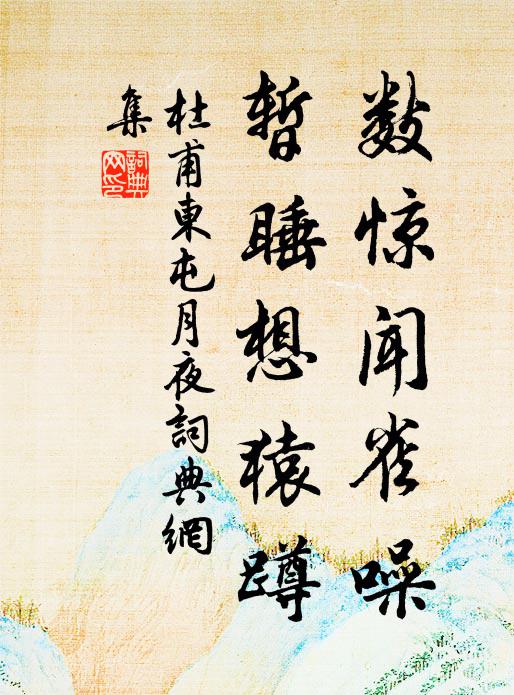 数惊闻雀噪
暂睡想猿蹲
杜甫東屯月夜詞典網
集
詞典
网印